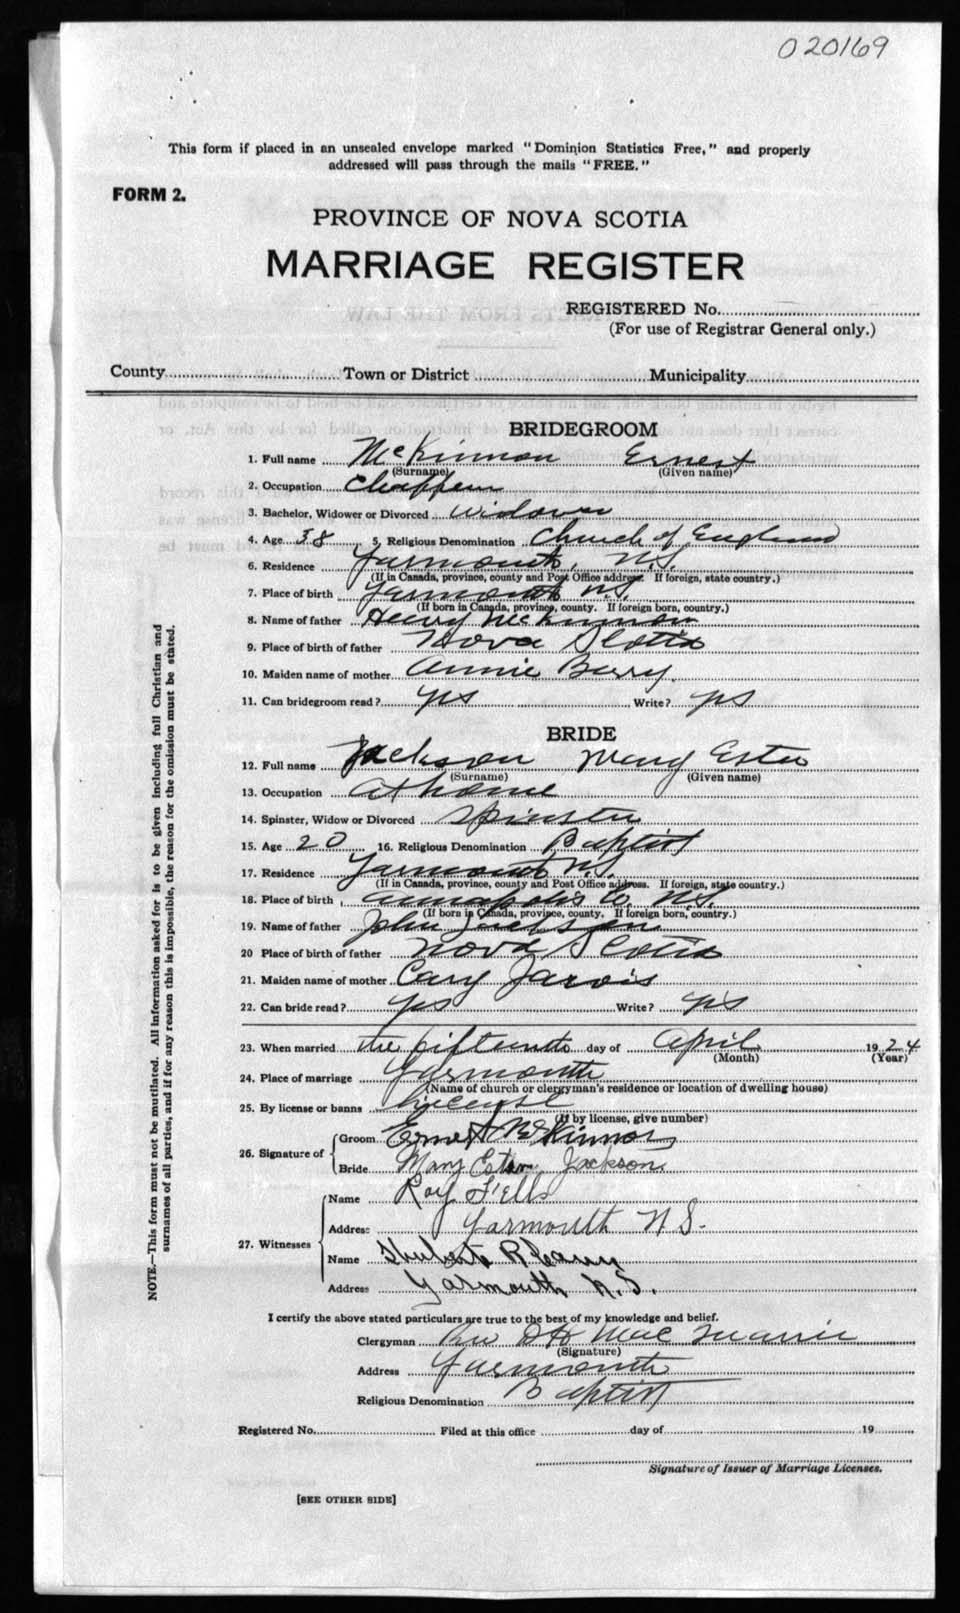 020169
This form if placed in an unsealed envelope marked "Dominion Statistics Free," and properly
addressed will pass through the mails "FREE."
FORM 2.
PROVINCE OF NOVA SCOTIA
MARRIAGE REGISTER
REGISTERED No.
(For use of Registrar General only.)
County Town or District Municipality
BRIDEGROOM
1. Full name McKinnon Ernest
(Surname) (Given name)
2. Occupation
3. Bachelor, Widower or Divorced Widower
4. Age 38 5. Religious Denomination Church of England
6. Residence Yarmouth, N.S.
(If in Canada, province, county and Post Office address. If foreign, state country.)
7. Place of birth Yarmouth N.S.
(If born in Canada, province, county. If foreign born, country.)
8. Name of father Henry McKinnon
9. Place of birth of father Nova Scotia
10. Maiden name of mother Annie Barry
11. Can bridegroom read? yes Write? yes
BRIDE
12. Full name Jackson Mary Ester
(Surname) (Given name)
13. Occupation at home
14. Spinster, Widow or Divorced Spinster
15. Age 20 16. Religious Denomination Baptist
17. Residence Yarmouth N.S.
(If in Canada, province, county and Post Office address. If foreign, state country.)
18. Place of birth Annapolis Co. N.S.
(If born in Canada, province, county. If foreign born, country.)
19. Name of father John Jackson
20 Place of birth of father Nova Scotia
21. Maiden name of mother Cary Jarvis
22. Can bride read? yes Write? yes
23. When married the fifteenth day of April 1924
(Month) (Year)
24. Place of marriage Yarmouth
(Name of church or clergyman's residence or location of dwelling house)
25. By license or banns license
(If by license, give number)
26. Signature of
Groom Ernest McKinnon
Bride Mary Jackson
27. Witnesses
Name Roy Fells
Address Yarmouth N S.
Name R
Address Yarmouth N.S.
I certify the above stated particulars are true to the best of my knowledge and belief.
Clergyman Rev D H Mac
(Signature)
Address Yarmouth
Religious Denomination Baptist
Registered No. Filed at this office day of 19
Signature of Issuer of Marriage Licenses.
[SEE OTHER SIDE]
NOTE.—This form must not be mutilated. All information asked for is to be given including full Christian and
surnames of all parties, and if for any reason this is impossible, the reason for the omission must be stated.